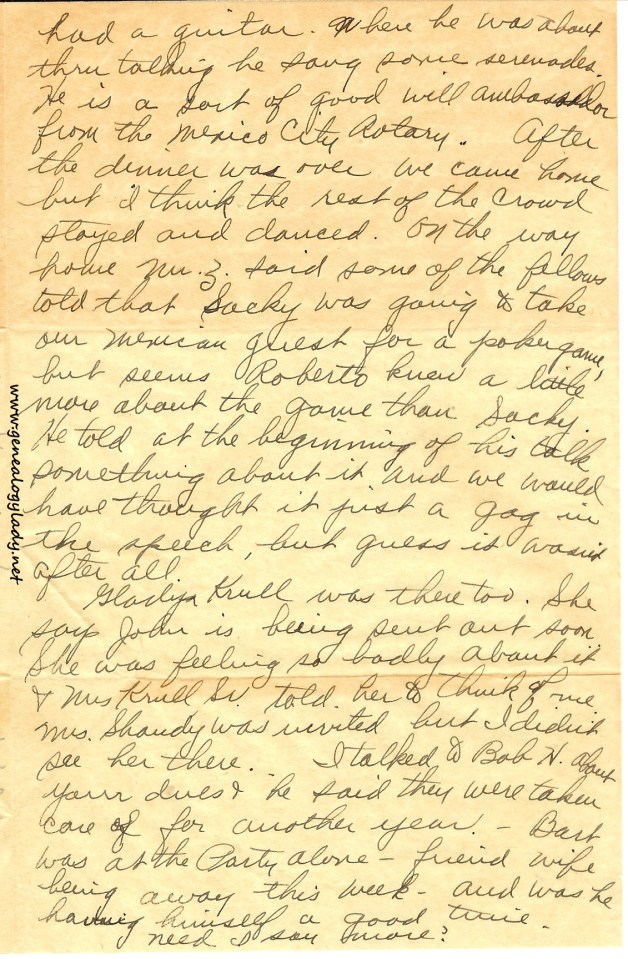 had a guitar. When he was about
thru talking he sang some serenades.
He is a sort of good will ambassador
from the Mexico City Rotary. After
the dinner was over we came home
but I think the rest of the crowd
stayed and danced. On the way
home Mr. Z. said some of the fellows
told that Socky was going to take
our Mexican guest for a poker game,
but seems Roberto knew a little
more about the game than Socky.
He told at the beginning of his talk
something about it and we would
have thought it just a gag in
the speech, but guess it wasn't
after all
Gladys Krull was there too. She
says John is being sent out soon
She was feeling so badly about it
& Mrs Krull Sr. told her to think of me
Mrs. Shaudy was invited but I didn't
see her there. I talked to Bob H. about
your dues & he said they were taken
care of for another year. - Bart
was at the Party alone - friend wife
being away this week - and was he
having himself a good time.
need I say more?
www.genealogylady.net